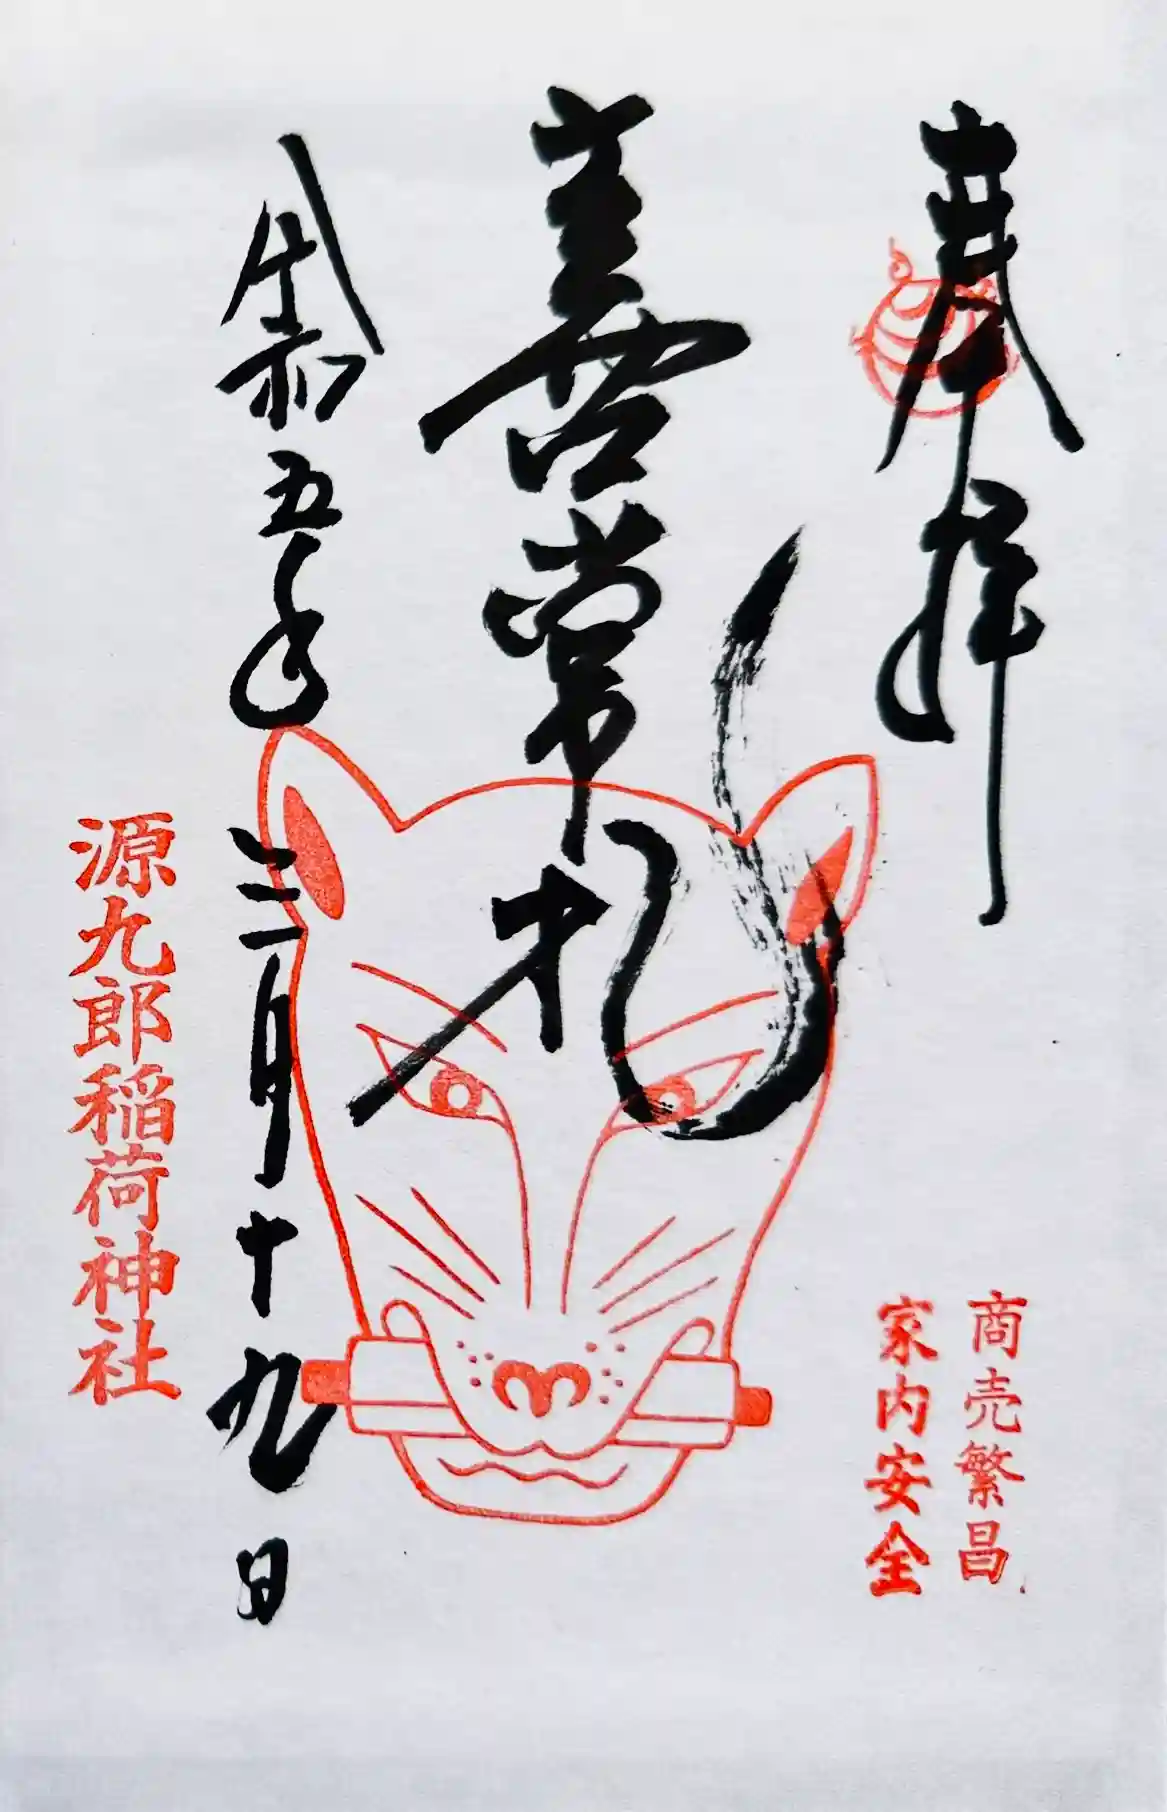 奉拝
商売繁昌
家内安全
喜常礼
令和五年三月十九日
源九郎稲荷神社